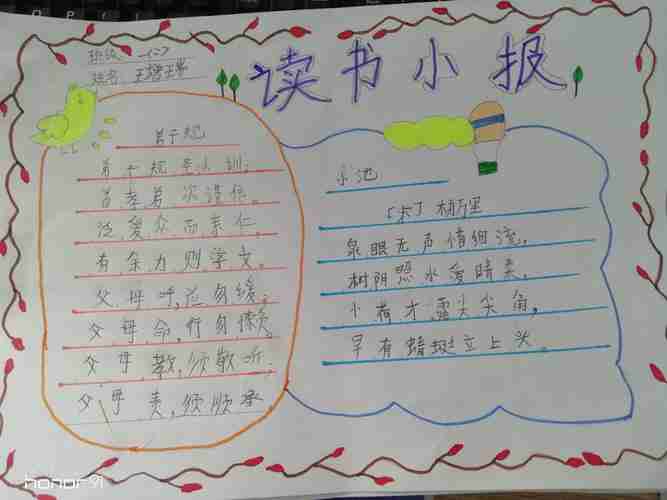 读书小报
班级 一(二)
姓名 王
弟子规
弟子规圣人训。
首孝弟,次谨信。
泛爱众而亲仁。
有余力则学文。
父母呼,应勿缓。
父母命,行勿懒。
父母教,须敬听。
父母责,须顺承
小池
杨万里
泉眼无声惜细流,
树阴照水爱晴柔。
小荷才露尖尖角,
早有蜻蜓立上头。
honor 9i